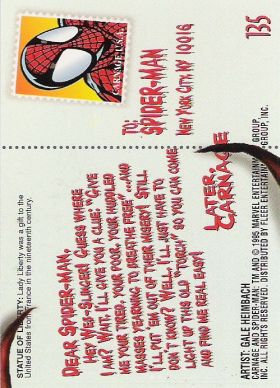 STATUE OF LIBERTY: Lady Liberty was a gift to the
United States from France in the nineteenth century.
DEAR SPIDER-MAN,
HEY WEB-SLINGER! GUESS WHERE
I AM? WAIT, I'LL GIVE YOU A CLUE: "GIVE
ME YOUR TIRED, YOUR POOR, YOUR HUDDLED
MASSES YEARNING TO BREATHE FREE"...AND
I'LL PUT 'EM OUT OF THEIR MISERY! STILL
DON'T KNOW? WELL, I'LL JUST HAVE TO
LIGHT UP THIS OLD "TORCH" SO YOU CAN COME
AND FIND ME REAL EASY!
LATER,
CARNAGE
ARTIST: GALE HEIMBACH
CARNAGE AND SPIDER-MAN: TM AND © 1995 MARVEL ENTERTAINMENT GROUP,
INC. ALL RIGHTS RESERVED. DISTRIBUTED BY FLEER ENTERTAINMENT GROUP, INC.
CARNAGE U.S.A.
TO:
SPIDER-MAN
NEW YORK CITY, NY 10016
135